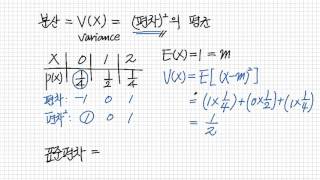 분산 = V(X) = (편차)² 의 평균
variance
X 0 1 2
P(X) 1/4 1/2 1/4
편차: -1 0 1
편차²: 1 0 1
표준편차 =
E(X) = 1 = m
V(X) = E[(X-m)²]
= (1×1/4)+(0×1/2)+(1×1/4)
= 1/2